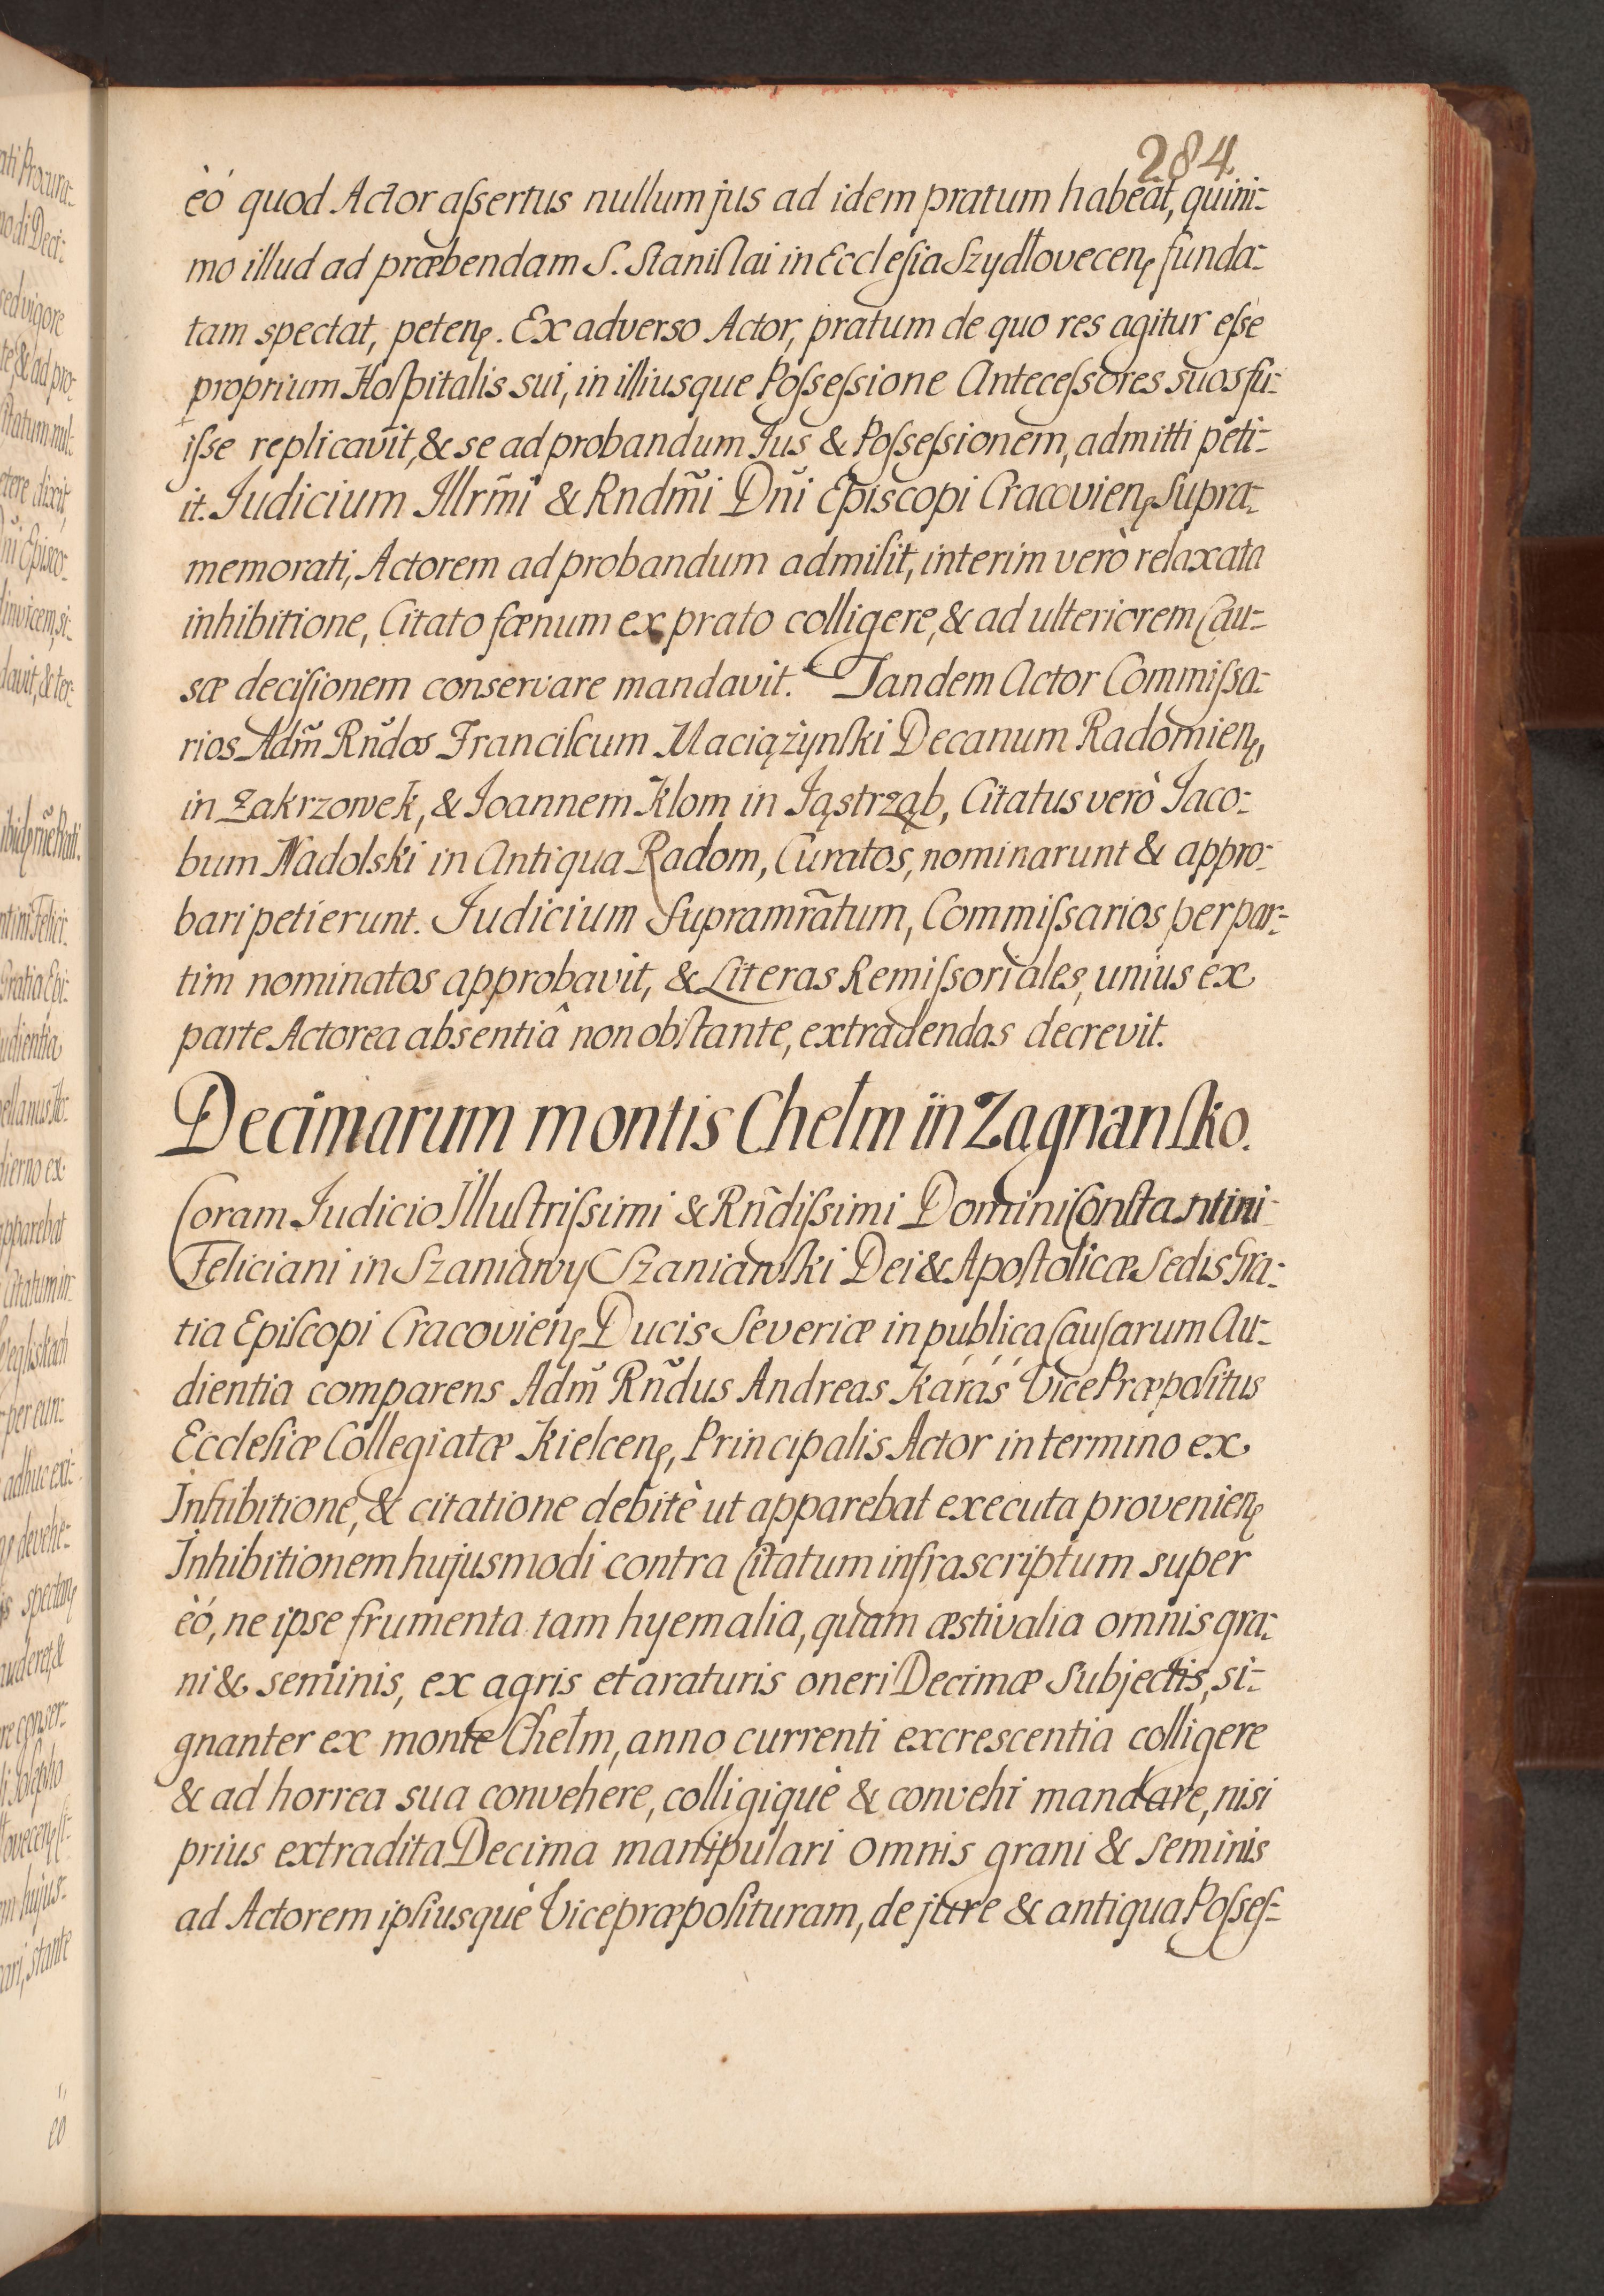 284.
èó quod Actor aſsertus nullum jus ad idem pratum habeat, quini-
mo illud ad præbendam S. Staniſlai in Eccleſia Szydłovecenę funda-
tam spectat, petenę. Ex adverso Actor, pratum de quo res agitur eſse
proprium Hoſpitalis sui, in illiusque Poſseſsione Anteceſsores suos fu-
iſse replicavit, & se ad probandum Jus & Poſseſsionem, admitti peti-
it. Judicium Illrm̃i & Rndm̃i Dñi Episcopi Cracovienę Supra-
memorati, Actorem ad probandum admiſit, interim verò relaxata
inhibitione, Citato fœnum ex prato colligere, & ad ulteriorem Cau-
sæ deciſionem conservare mandavit. Tandem Actor Commiſsa-
rios Adm̃ Rñdos Franciſcum Maciążÿnſki Decanum Radomienę,
in Zakrzowek, & Joannem Klom in Jąstrząb, Citatus verò Jaco-
bum Nadolski in Antiqua Radom, Curatos, nominarunt & appro-
bari petierunt. Judicium Supramr̃atum, Commiſsarios per par-
tim nominatos approbavit, & Literas Remiſsoriales, unius ex
parte Actorea absentiâ non obſtante, extradendas decrevit.
Decimarum montis Chełm in Zagnanſko.
Coram Judicio Illuſtriſsimi & Rñdiſsimi Domini Conſtantini
Feliciani in Szaniawy Szaniawſki Dei & Apoſtolicæ Sedis Gra-
tia Epiſcopi Cracovienę Ducis Severiæ in publica Cauſarum Au-
dientia comparens Adm̃ Rñdus Andreas Káráś Vice Præpoſitus
Eccleſiæ Collegiatæ Kielcenę, Principalis Actor in termino ex
Inhibitione, & citatione debitè ut apparebat executa provenienę
Inhibitionem hujusmodi contra Citatum infrascriptum super
èó, ne ipse frumenta tam hyemalia, quam æstivalia omnis gra-
ni & seminis, ex agris et araturis oneri Decimæ Subjectis, si-
gnanter ex monte Chełm, anno currenti excrescentia colligere
& ad horrea sua convehere, colligiquè & convehi mandare, nisi
prius extradita Decima manipulari omnis grani & Seminis
ad Actorem ipſiusquè Vicepræpoſituram, de jure & antiqua Poſseſ-